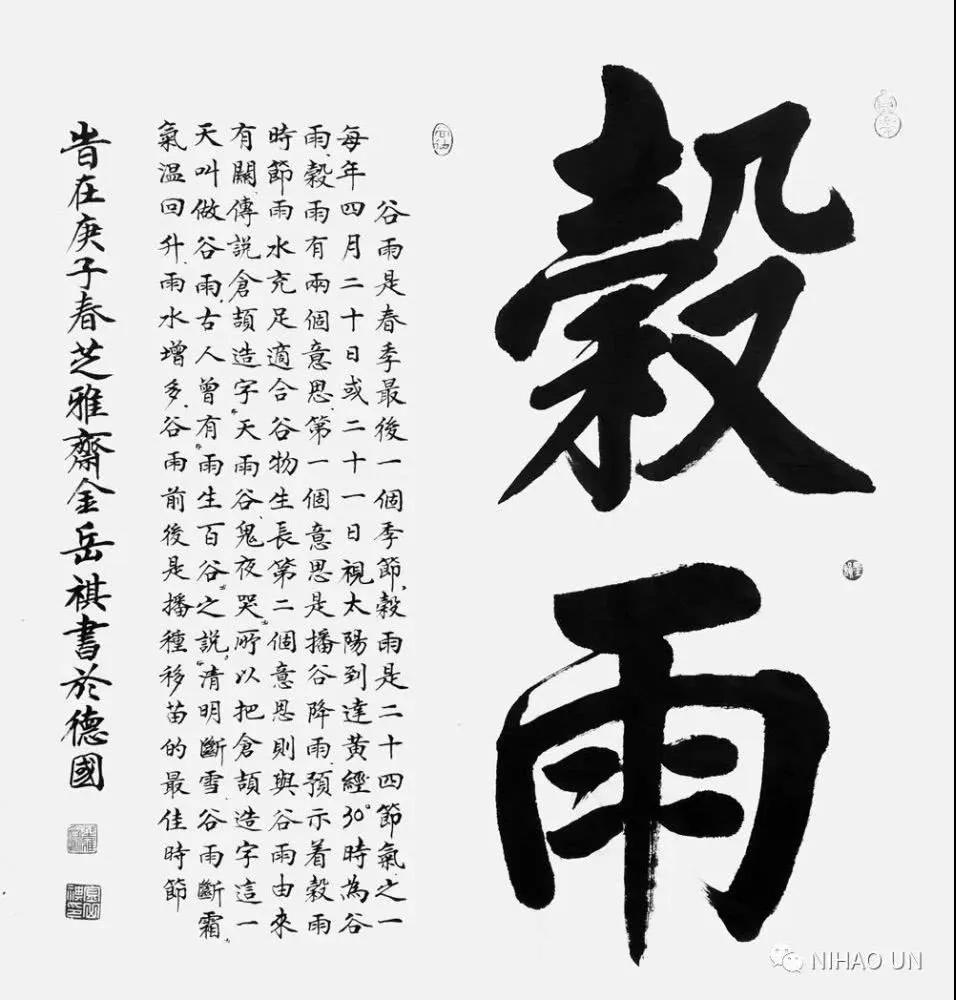 穀雨
谷雨是春季最後一個季節,穀雨是二十四節氣之一
每年四月二十日或二十一日視太陽到達黃經30°時為谷
雨,穀雨有兩個意思第一個意思是播谷降雨預示着穀雨
時節雨水充足適合谷物生長第二個意思則與谷雨由來
有關,傳說倉頡造字“天雨谷,鬼夜哭”所以把倉頡造字這一
天叫做谷雨,古人曾有“雨生百谷”之說,“清明斷雪,谷雨斷霜”
氣溫回升,雨水增多,谷雨前後是播種移苗的最佳時節
旹在庚子春芝雅齋金岳祺書於德國
NIHAO UN